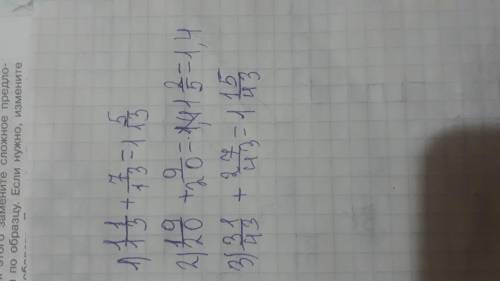 этого замените сложное предло-
по образцу. Если нужно, измените
1) 11/13 + 7/13 = 1 5/13
2) 19/20 + 9/20 = 1 2/5 = 1,4
3) 31/43 + 27/43 = 1 15/43